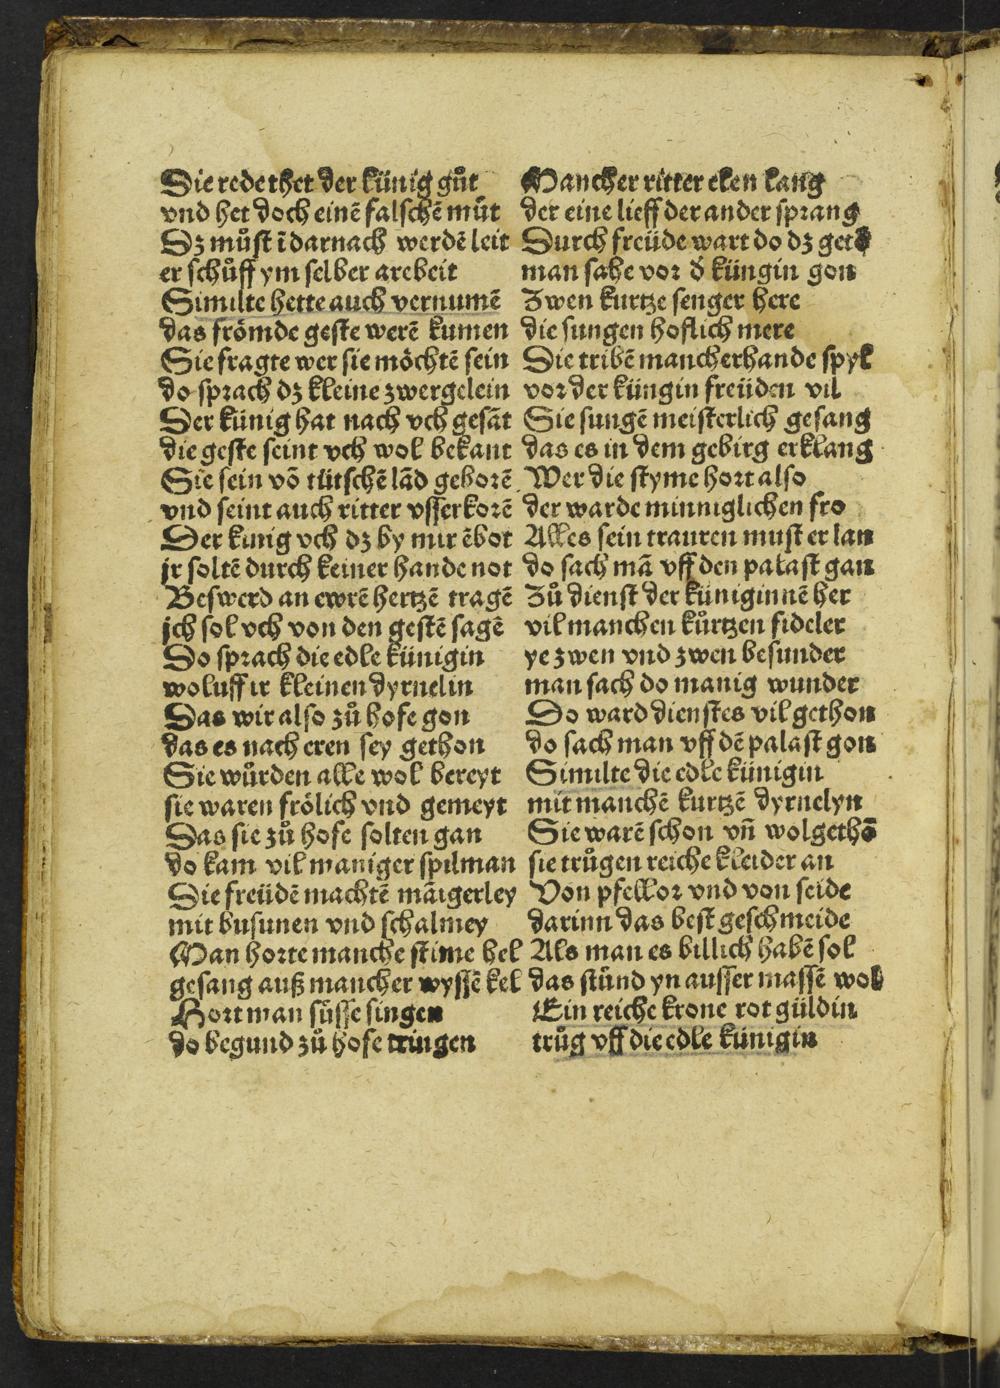 Die rede thet der künig gůt
vnd het doch einē falschē můt
Dz můſt ī darnach werdē leit
er ſchůff ym ſelber arebeit
Similte hette auch vernumē
das frömde geſte werē kumen
Sie fragte wer ſie möchtē ſein
do ſprach dz kleine zwergelein
Der künig hat nach vch geſāt
die geſte ſeint vch wol bekant
Sie ſein vō tütſchē lād geborē
vnd ſeint auch ritter vſſerkorē
Der künig vch dz by mir ēbot
jr ſoltē durch keiner hande not
Beſwerd an ewrē hertzē tragē
jch ſol vch von den geſtē ſagē
Do ſprach die edle künigin
wol uff ir kleinen dyrnelin
Das wir alſo zů hofe gon
das es nach eren ſey gethon
Sie würden alle wol bereyt
ſie waren frölich vnd gemeyt
Das ſie zů hofe ſolten gan
do kam vil maniger ſpilman
Die freüdē machtē māigerley
mit buſunen vnd ſchalmey
Man horte manche ſtime hel
geſang auß mancher wyſſē kel
Hort man ſüſſe ſingen
do begund zů hofe tringen
Mancher ritter elen lang
der eine lieff der ander ſprang
Durch freüde wart do dz
man ſahe vor d̓ küngin gon
Zwen kurtze ſenger here
die ſungen hoflich mere
Die tribē mancherhande ſpyl
vor der küngin freüden vil
Sie ſungē meiſterlich geſang
das es in dem gebirg erklang
Wer die ſtyme hort alſo
der warde minniglichen fro
Alles ſein trauren muſt er lan
do ſach mā vff den palaſt gan
Zů dienſt der küniginnē her
vil manchen kůrtzen fideler
ye zwen vnd zwen beſunder
man ſach do manig wunder
Do ward dienſtes vil gethon
do ſach man vff dē palaſt gon
Similte die edle künigin
mit manchē kurtzē dyrnelyn
Sie warē ſchon vn̄ wolgethō
ſie trůgen reiche kleider an
Von pfellor vnd von ſeide
darinn das beſt geſchmeide
Als man es billich habē ſol
das ſtůnd yn auſſer maſſē wol
Ein reiche krone rot güldin
trůg vff die edle künigin